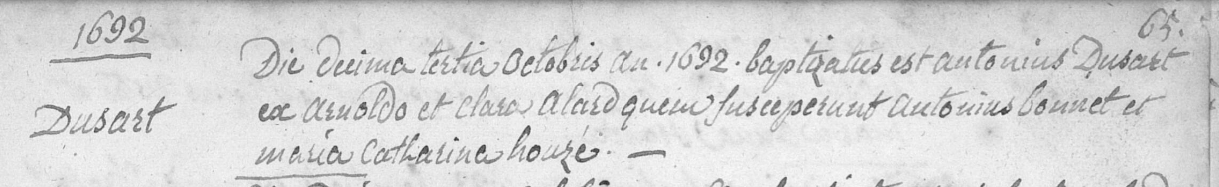 65.
1692
Die decima tertia octobris an. 1692. baptizatus est antonius Dusart
Dusart
ex arnoldo et clara alard quem susceperunt antonius bonnet et
maria Catharina houzé. —